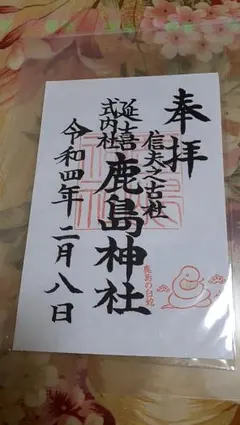 奉拝
信夫之古社
鹿島神社
延喜
式内社
令和四年 二月八日
鹿島の白蛇